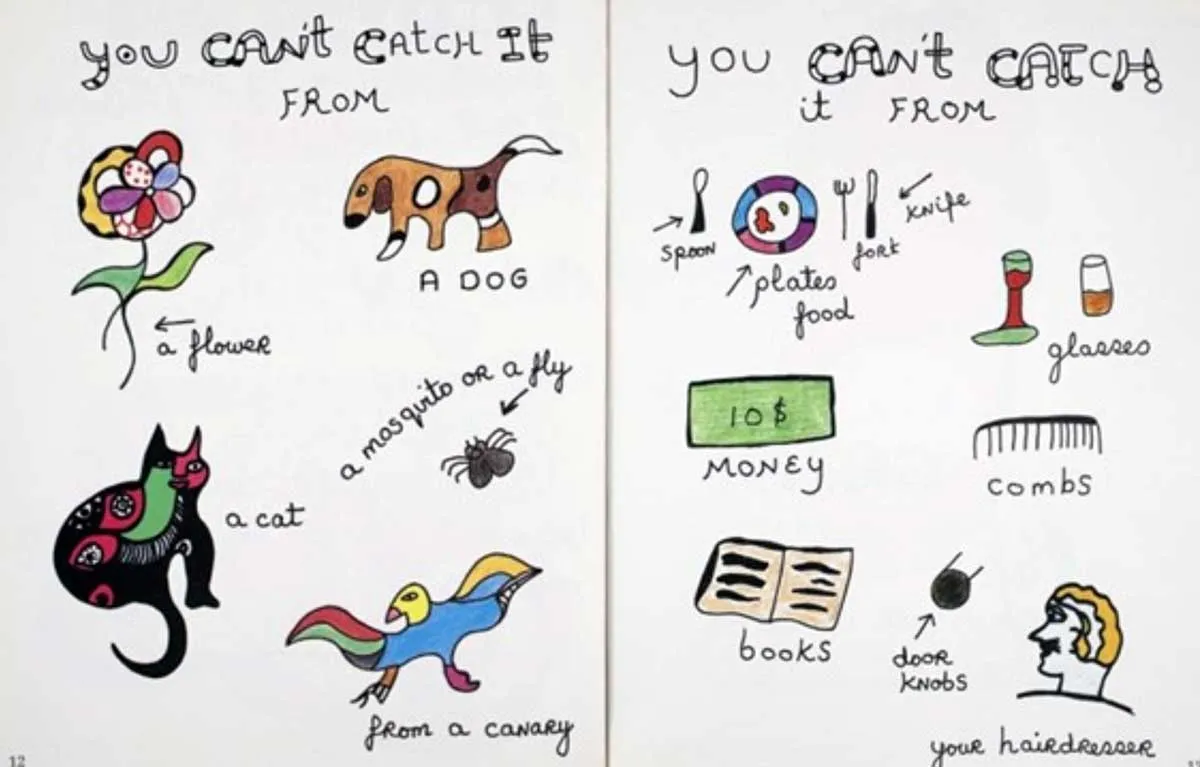 you CAN't CATCH It
FROM
a flower
A DOG
a mosquito OR a fly
a cat
from a CANARY
12
you CAN't CATCH
it FROM
spoon
plates
food
fork
knife
glasses
10 $
MONEY
combs
books
DOOR
KNOBS
your hairdresser